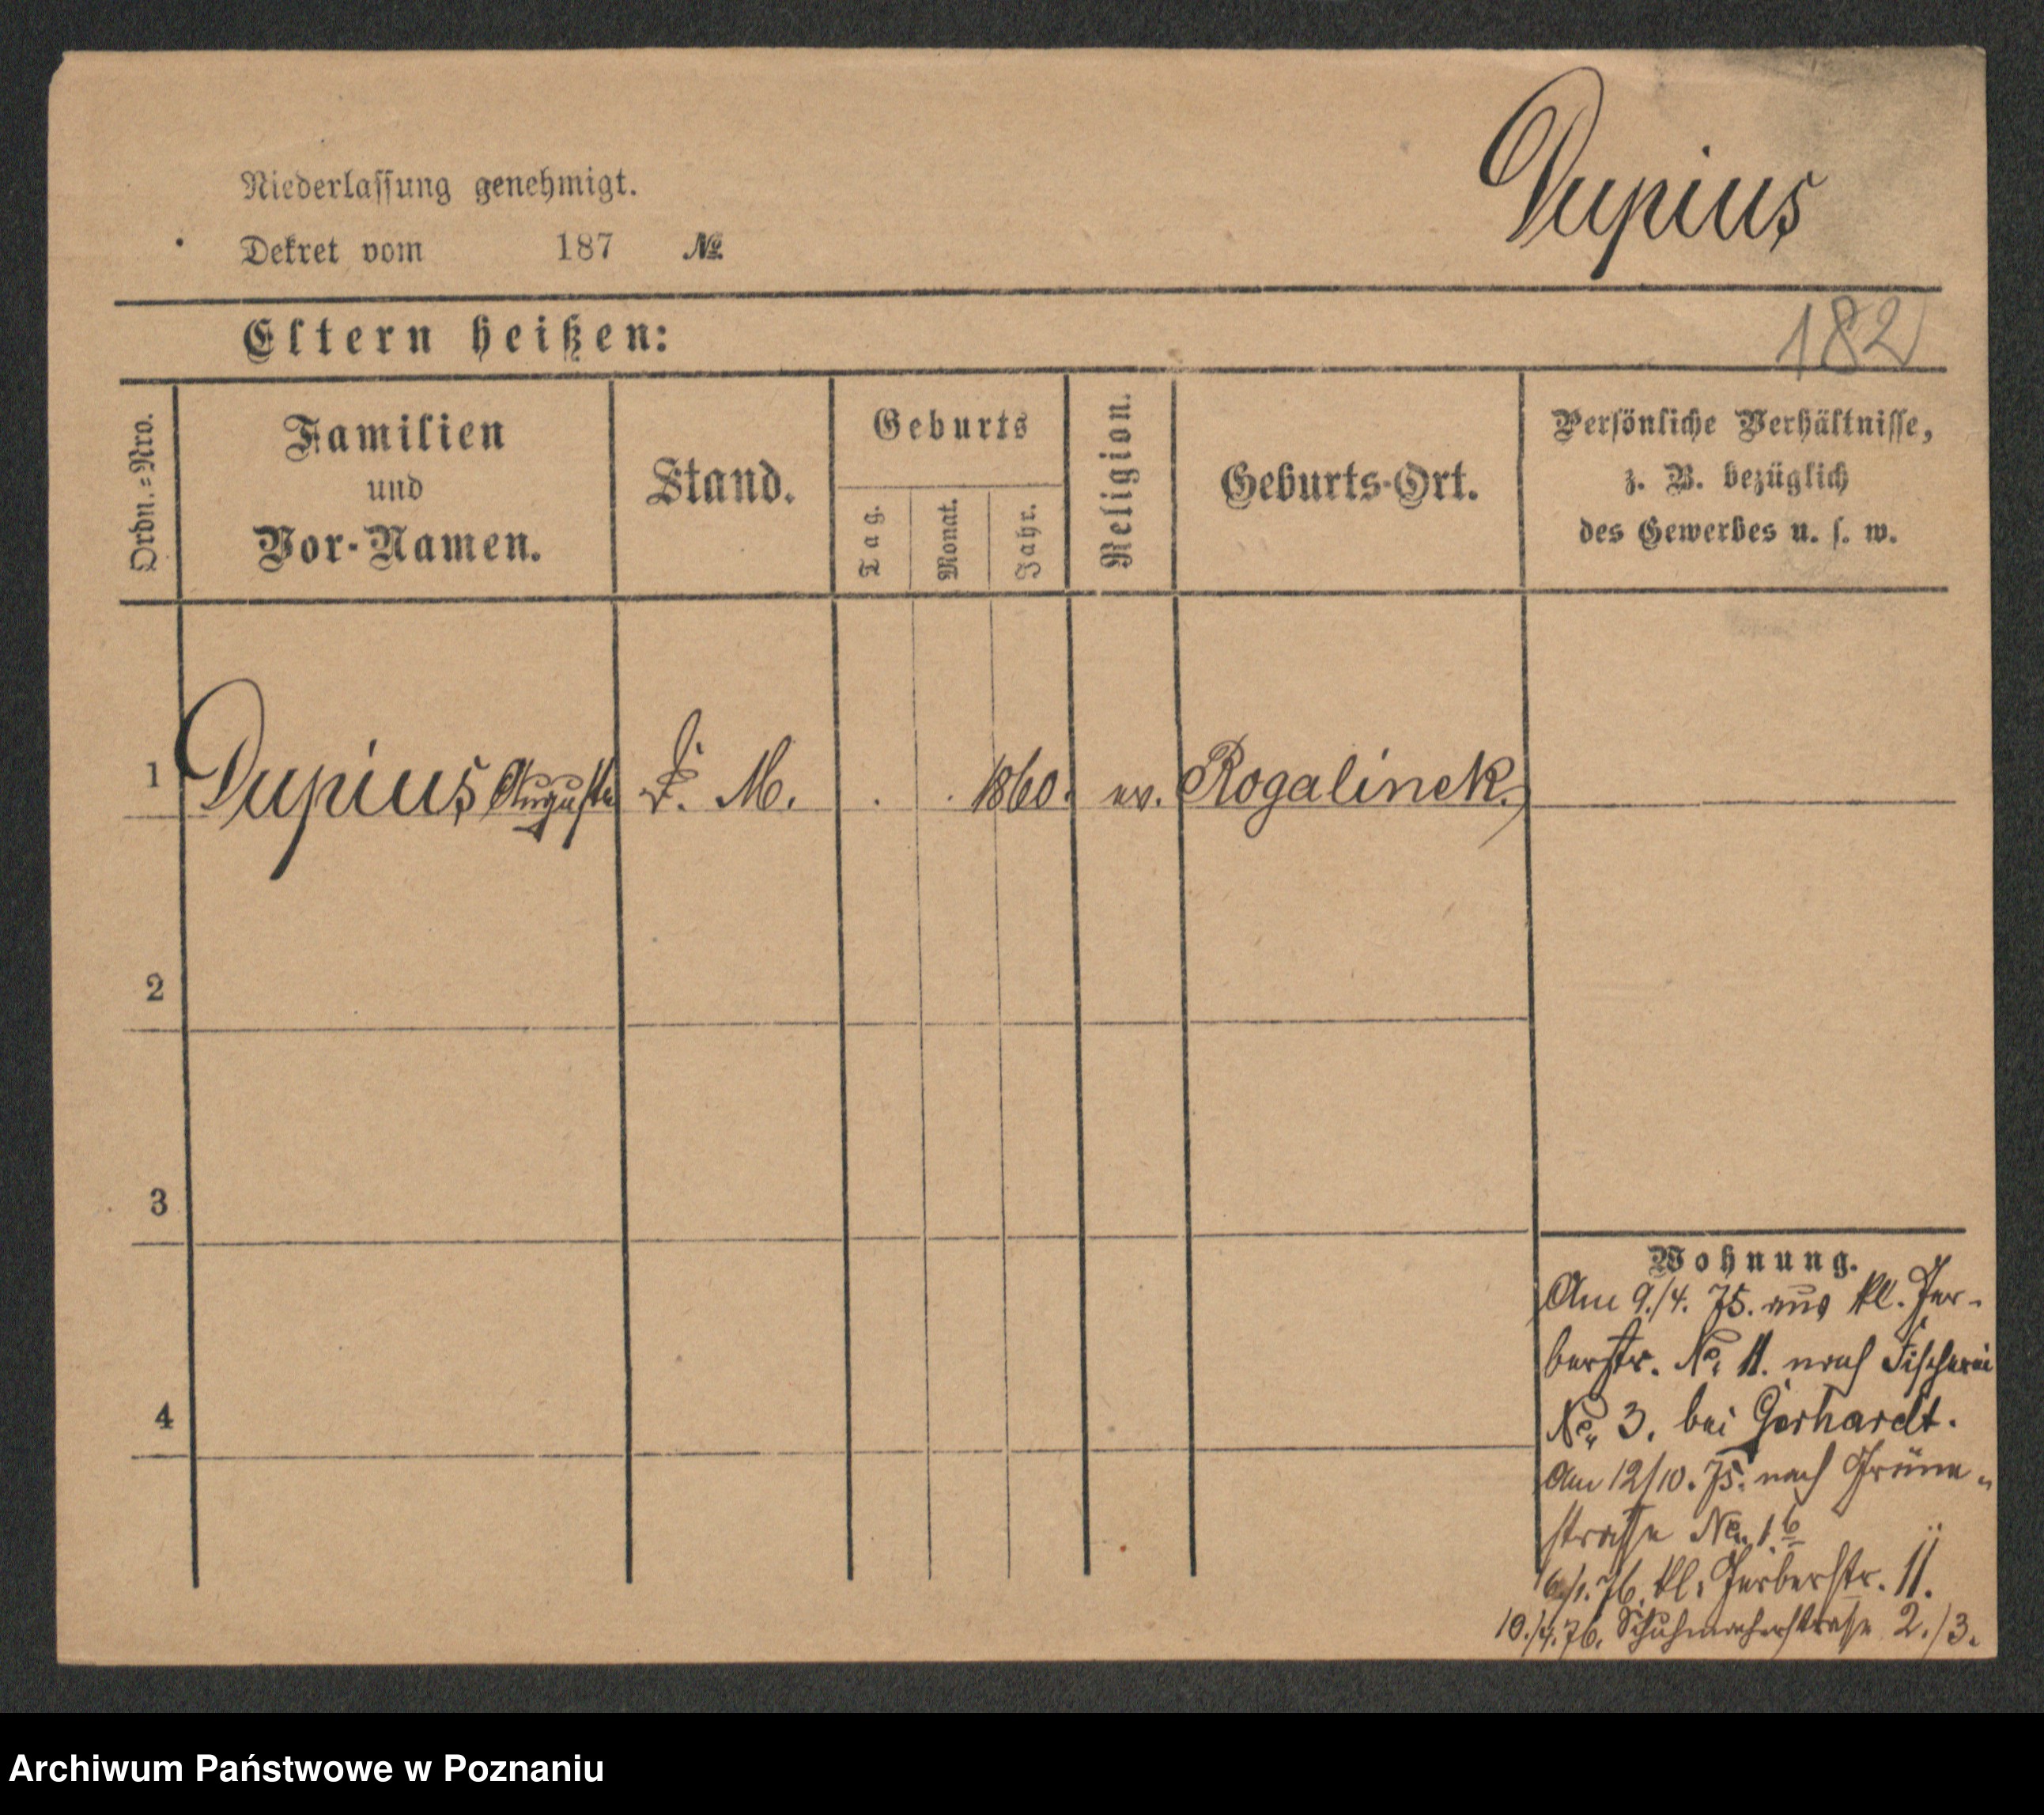 Dupius
Niederlassung genehmigt.
Dekret vom 187 №
Eltern heißen:
182
Ordn.=Nro.
Familien
und
Vor-Namen.
Stand.
Geburts
Tag.
Monat.
Jahr.
Religion.
Geburts-Ort.
Persönliche Verhältnisse,
z. B. bezüglich
des Gewerbes u. s. w.
1 Dupius Auguste D. M. . . 1860. ev. Rogalinek.
2
3
4
Wohnung.
Am 9./4. 75. aus kl. Ger-
berstr. No. 11. nach Fischerei
No. 3. bei Gerhardt.
Am 12/10. 75. nach Grüne-
strasse No. 1.b
6./1. 76. kl. Gerberstr. 11.
10./4. 76. Schuhmacherstrasse 2./3.
Archiwum Państwowe w Poznaniu